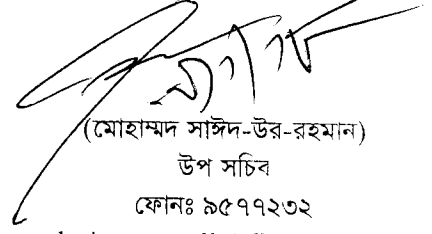 (মোহাম্মদ সাঈদ-উর-রহমান)
উপ সচিব
ফোনঃ ৯৫৭৭২৩২